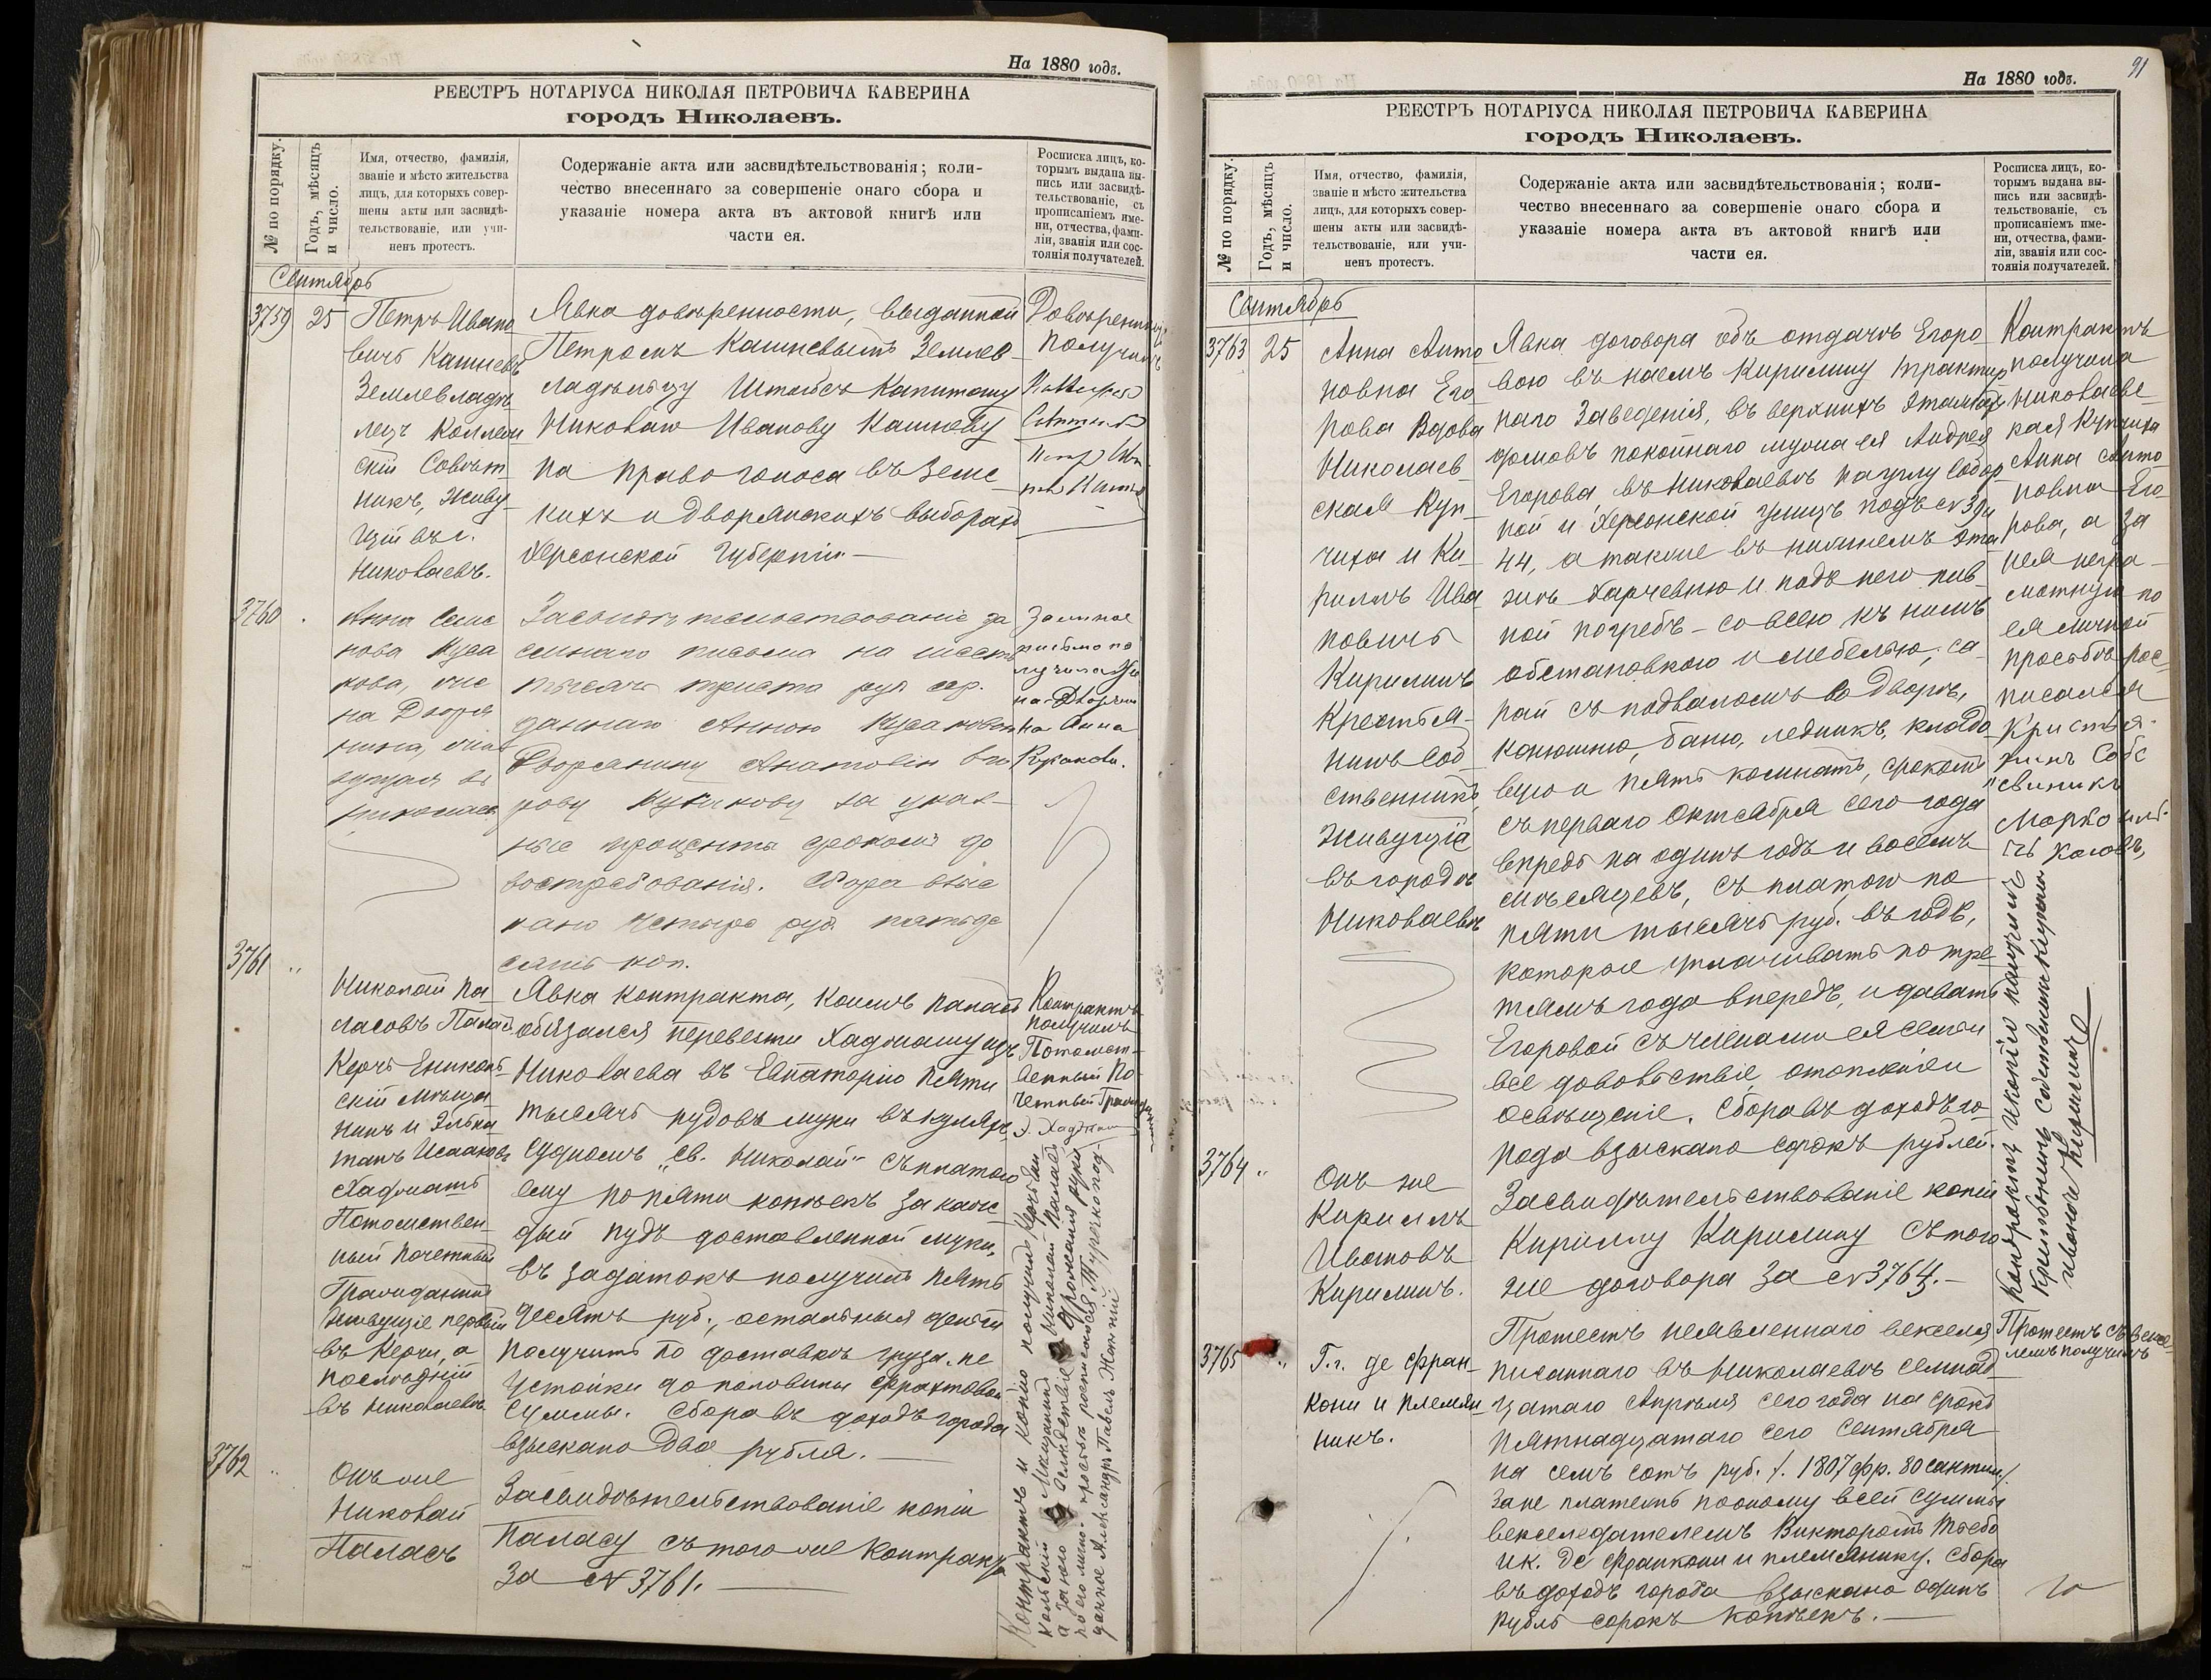 На 1880 годъ.
РЕЕСТРЪ НОТАРІУСА НИКОЛАЯ ПЕТРОВИЧА КАВЕРИНА
городъ Николаевъ.
№ по порядку.
Годъ, мѣсяцъ
и число.
Имя, отчество, фамилія,
званіе и мѣсто жительства
лицъ, для которыхъ совер-
шены акты или засвидѣ-
тельствованіе, или учи-
ненъ протестъ.
Содержаніе акта или засвидѣтельствованія; коли-
чество внесеннаго за совершеніе онаго сбора и
указаніе номера акта въ актовой книгѣ или
части ея.
Росписка лицъ, ко-
торымъ выдана вы-
пись или засвидѣ-
тельствованіе, съ
прописаніемъ име-
ни, отчества, фами-
ліи, званія или сос-
тоянія получателей.
Сентябрь
3759
25
Петръ Ивано
вичъ Кашневъ
Землевладѣ
лецъ Коллеж
скій Совѣт
никъ, живу
щій въ г.
Николаевѣ.
Явка довѣренности, выданной
Петромъ Кашневымъ Землев-
ладѣльцу Штабсъ Капитану
Николаю Иванову Кашневу
на право голоса въ Земс
кихъ и дворянскихъ выборахъ
Херсонской Губерніи
Довѣренность
получилъ
3760
Анна Семе
нова Куса
кова, же
на Дворя
нина, жив
ущая въ
Николаевѣ
Засвидѣтельствованіе за
емнаго письма на шесть
тысячъ триста руб. сер.
даннаго Анною Кусаковою
Дворянину Анатолію
Кусакову за указ-
ные проценты срокомъ до
востребованія. Сбора взыс
кано четыре руб. пятьде
сятъ коп.
Заемное
письмо по
лучила же
на Дворяни
на Анна
Кусакова.
3761
Николай Па-
ласовъ Паласъ
Керчь Еникаль
скій Мѣща
нинъ и Элька
танъ Исааковъ
Хаджашъ
Потомствен-
ный Почетный
Гражданинъ
Живущіе первый
въ Керчи, а
послѣдній
въ Николаевѣ
Явка контракта, коимъ Паласъ
обязался перевезти Хаджашу изъ
Николаева въ Евпаторію пяти
тысячъ пудовъ муки въ куляхъ
судномъ „св. Николай" съ платою
ему по пяти копѣекъ за каж-
дый пудъ доставленной муки,
въ задатокъ получилъ пять
десятъ руб., остальныя деньги
получитъ по доставкѣ груза. не
устойки до половины фрахтовой
суммы. Сбора въ доходъ города
взыскано два рубля.
Контрактъ
получилъ
Потомст-
венный По-
четный Гражда
нинъ
Э. Хаджаш
3762
Онъ же
Николай
Паласъ
Засвидѣтельствованіе копіи
Паласу съ того же контракта
за № 3761.
Контрактъ и копію получилъ Керчь Ени
кольскій Мѣщанинъ Николай Паласъ
а за него
по его лично. просьбѣ росписался
Александръ Павелъ
На 1880 годъ.
91
РЕЕСТРЪ НОТАРІУСА НИКОЛАЯ ПЕТРОВИЧА КАВЕРИНА
городъ Николаевъ.
№ по порядку.
Годъ, мѣсяцъ
и число.
Имя, отчество, фамилія,
званіе и мѣсто жительства
лицъ, для которыхъ совер-
шены акты или засвидѣ-
тельствованіе, или учи-
ненъ протестъ.
Содержаніе акта или засвидѣтельствованія; коли-
чество внесеннаго за совершеніе онаго сбора и
указаніе номера акта въ актовой книгѣ или
части ея.
Росписка лицъ, ко-
торымъ выдана вы-
пись или засвидѣ-
тельствованіе, съ
прописаніемъ име-
ни, отчества, фами-
ліи, званія или сос-
тоянія получателей.
Сентябрь
3763
25
Анна Анто
новна Его
рова Вдова
Николаев
ская Куп-
чиха и Ки-
риллъ Ива
новичъ
Кирилинъ
Крестья-
нинъ Соб
ственникъ
Живущіе
въ городѣ
Николаевѣ
Явка договора объ отдачѣ Егоро
вою въ наемъ Кирилину трактир
наго заведенія, въ верхнихъ этажахъ
домовъ покойнаго мужа ея Андрея
Егорова, въ Николаевѣ на углу Собор
ной и Херсонской улицъ подъ № 39 и
44, а также въ нижнемъ эта
жѣ Харчевню и подъ него пив
ной погребъ - со всею къ нимъ
обстановкою и мебелью, са-
рай съ подваломъ во дворѣ,
конюшню, баню, ледникъ, кладо
вую и пять комнатъ, срокомъ
съ перваго Октября сего года
впредь на одинъ годъ и восемь
мѣсяцевъ, съ платою по
пяти тысячъ руб. въ годъ,
которое уплачивать по тре
тямъ года впередъ, и давать
Егоровой съ членами ея семьи
все довольствіе, отопленіе и
освѣщеніе. Сбора въ доходъ го-
рода взыскано сорокъ рублей.
Контрактъ
получила
Николаевс
кая Купчиха
Анна Анто-
новна Его-
рова, а за
нея негра-
мотную по
ея личной
просьбѣ рос
писался
Крестья-
нинъ Собс
3764
Онъ же
Кириллъ
Ивановъ
Кирилинъ.
Засвидѣтельствованіе копіи
Кириллу Кирилину съ того
же договора за № 3764.-
Контрактъ и копію получилъ
Крестьянинъ Собственникъ Кирилъ
Ивановъ Кирилинъ
3765
Г.г. де Фран-
кони и племян
никъ.
Протестъ неявленнаго векселя
писаннаго въ Николаевѣ семнад
цатаго Апрѣля сего года на срокъ
пятнадцатаго сего Сентября
на семь сотъ руб. /. 1807 фр. 80 сантим/.
за не платежъ по оному всей суммы
векселедателемъ Викторомъ
де Франкони и племяннику. Сбора
въ доходъ города взыскано одинъ
рубль сорокъ копѣекъ.
Протестъ съ вексе
лемъ получилъ